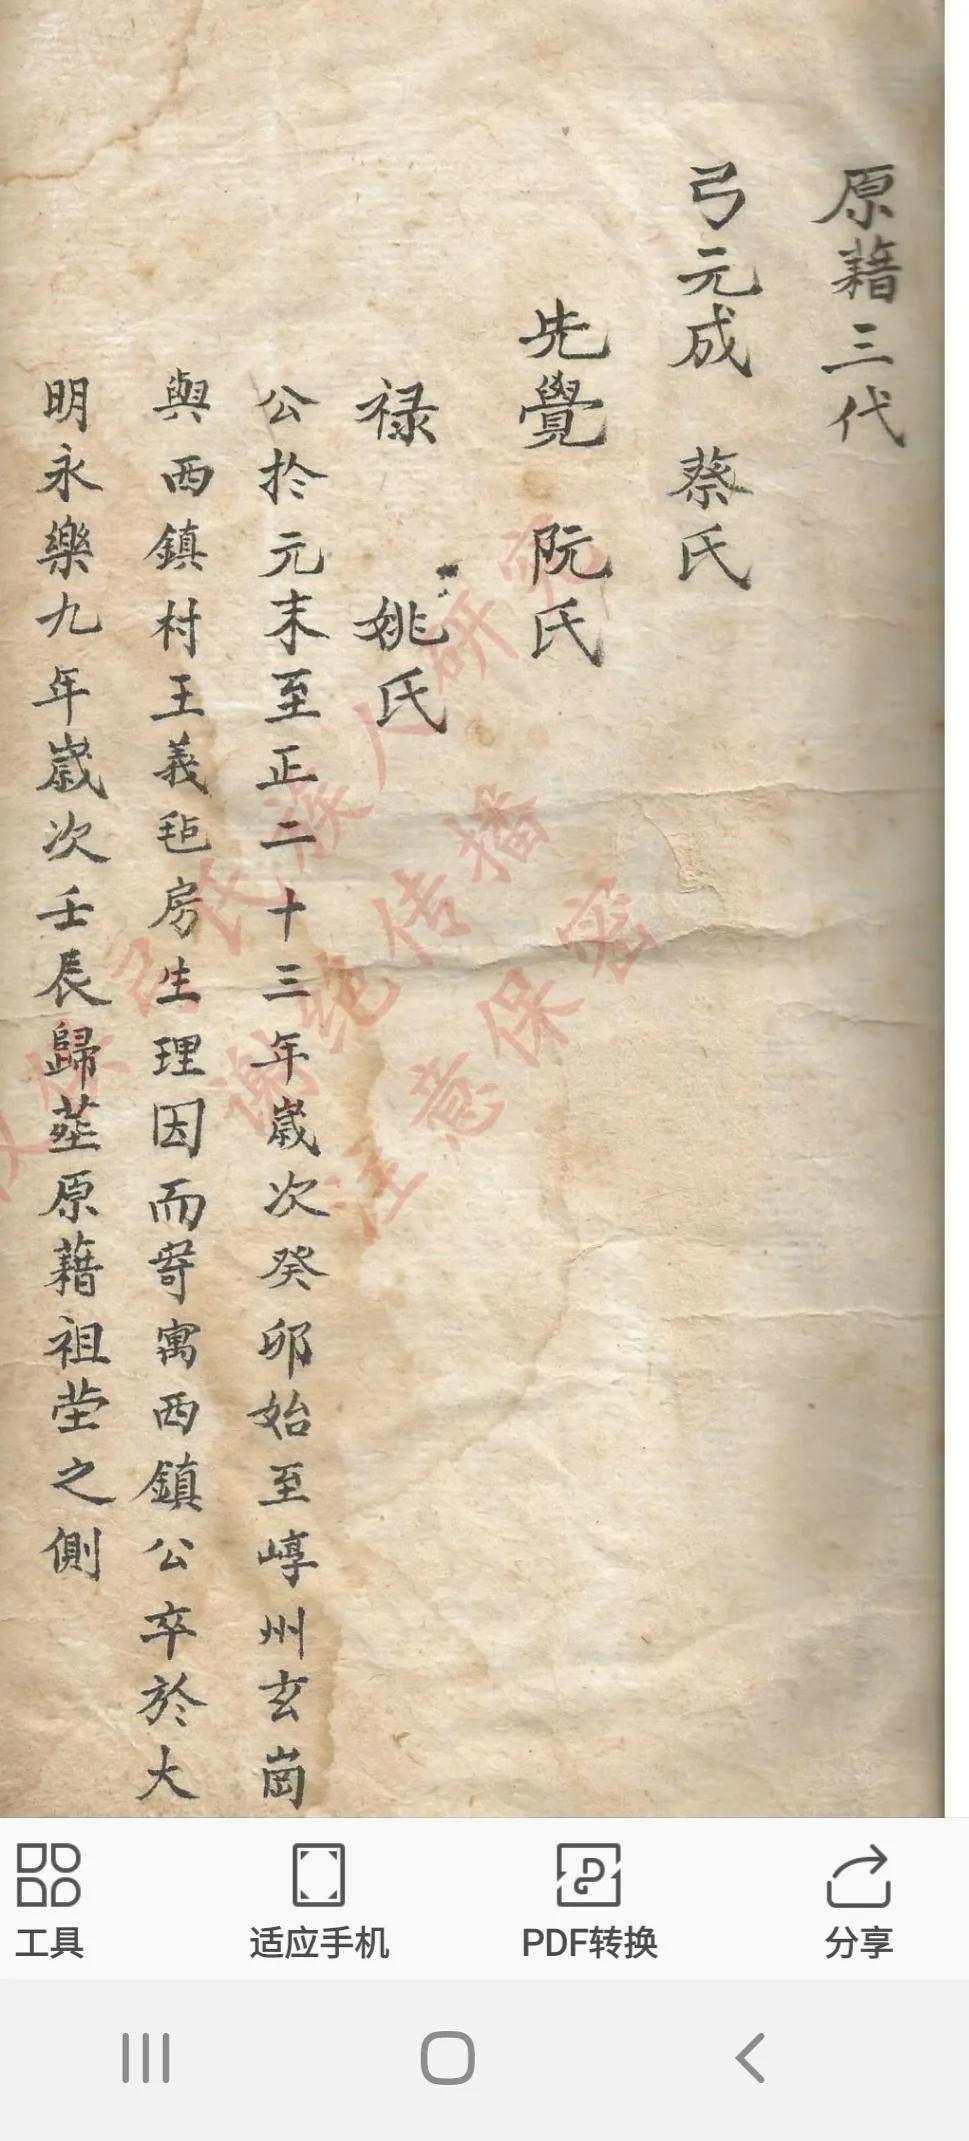 原藉三代
弓元成 蔡氏
先覺 阮氏
禄 姚氏
公扵元末至正二十三年歲次癸卯始至崞州玄崗
與西鎮村王義毡房生理因而寄寓西鎮公卒於大
明永樂九年歲次壬辰歸塟原藉祖塋之側
族人研究
谢绝传播
注意保密
工具
适应手机
PDF转换
分享